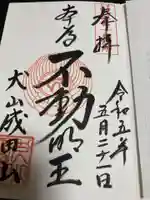 奉拝
令和五年
五月二十一日
本尊
不動明王
犬山成田山